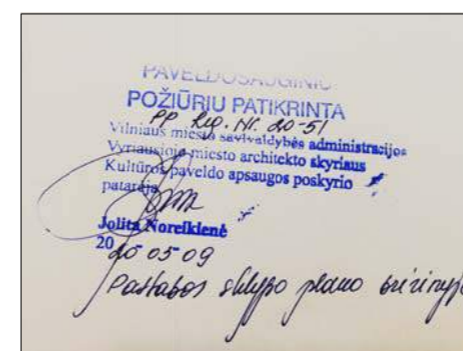 PAVELDOSAUGINIU
POŽIŪRIU PATIKRINTA
PP Reg. Nr. 20-51
Vilniaus miesto savivaldybės administracijos
Vyriausiojo miesto architekto skyriaus
Kultūros paveldo apsaugos poskyrio
patarėja
Jolita Noreikienė
20 20-05-09
Pastabos sklypo plano brėžinyje